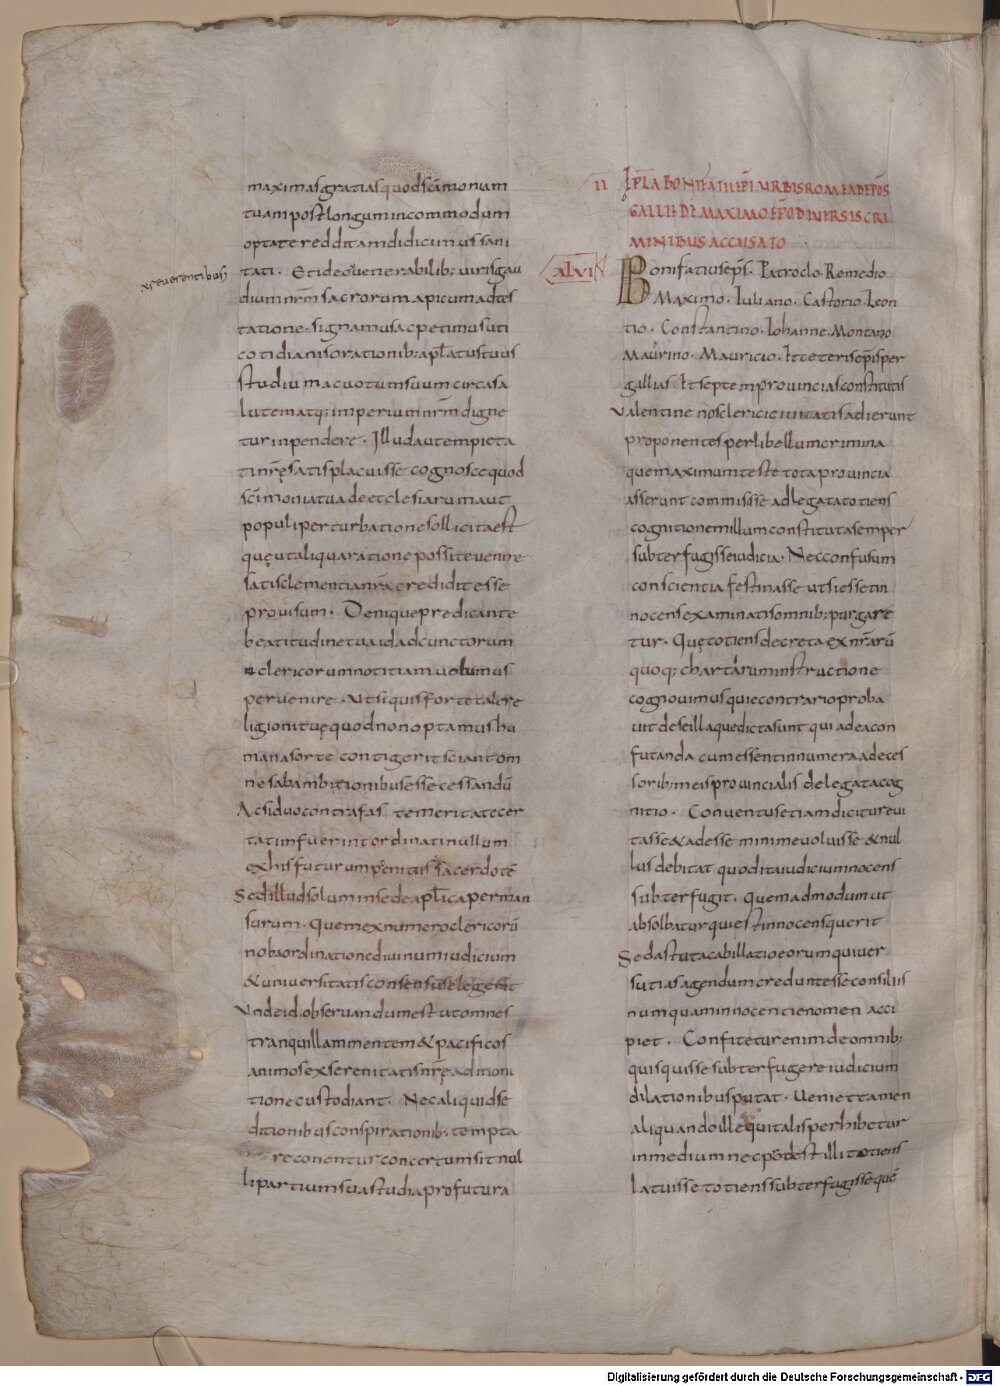 maximas gratias quod sc̄amoniam
tuam post longum incommodum
optate redditam didicimus sani
tati. Et ideo venerabilib; viris gau
xs reverentibus
dium nr̄m sacrorum apicum adtes
tatione signamus ac petimus uti
cotidianis orationib; apl̄atus tuus
studium ac votum suum circa sa
lutem atq; imperium nr̄m digne
tur inpendere. Illud autem pieta
ti nr̄ę satis placuisse cognosce quod
sc̄imonia tua de ecclesiarum aut
populi perturbatione sollicita est
quę ut aliqua ratione possit evenire
satis clementia nr̄a credidit esse
provisum. Denique predicante
beatitudine tua id ad cunctorum
clericorum notitiam volumus
pervenire. Ut si quis forte tale re
ligioni tuę quod non optamus hu
mana sorte contigerit sciant om
nes ab ambitionibus esse cessandū
Ac si duo contra fas temeritate cer
tati fuerint ordinati nullum
ex his futurum penitus sacerdotē
Sed illud solum in sede apl̄ica perman
surum. Quem ex numero clericorū
noba ordinatione divinum iudicium
& universitatis consensus elegerit
Unde id observandum est ut omnes
tranquillam mentem & pacificos
animos ex serenitatis nr̄ę admoni
tione custodiant. Nec aliquid se
ditionibus conspirationib; tempta
re conentur con certum sit nul
li partium sua studia profutura
II Ipl̄a Bonifatii ep̄i urbis Rome ad ep̄os
Gallie de Maximo ep̄o diversis cri
minibus accusato
XLVI Bonifatius ep̄s. Patroclo. Remedio
Maximo. Iuliano. Castorio. Leon
tio. Constantino. Iohanne. Montano
Maurino. Mauricio. Et ceteris ep̄is per
gallias. Et septem provincias constitutis
Valentine nos clerici civitatis adierunt
proponentes per libellum crimina
que maximum teste tota provincia
asserunt commisisse ad legata totiens
cognitionem illum constituta semper
subterfugisse iudicia. Nec confusum
conscientia festinasse ut si esset in
nocens examinatis omnib; purgare
tur. Quę totiens decreta ex nr̄arū
quoq; chartarum instructione
cognovimus qui e contrario proba
vit de se illa que dicta sunt qui adea con
futanda cum essent innumera ad eces
sorib; meis provincialis delegata cog
nitio. Conventus etiam dicitur evi
tasse & adesse minime voluisse & nul
lus debitat quod ita iudicium nocens
subterfugit. Quemadmodum ut
absolbatur qui est innocens querit
Sed astuta cabillatio eorum qui ver
sutias agendum credunt esse consiliis
numquam innocentie nomen acci
piet. Confitetur enim de omnib;
quisquis se subterfugere iudicium
dilationibus putat. Veniet tamen
aliquando ille qui talis perhibetur
in medium nec prodest illi totiens
latuisse totiens subterfugisse quē
Digitalisierung gefördert durch die Deutsche Forschungsgemeinschaft - DFG